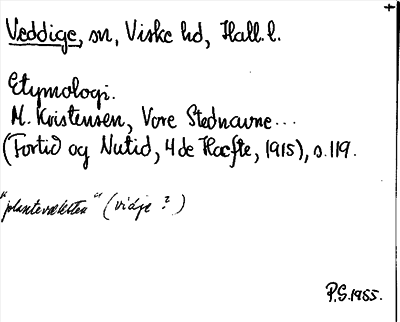 Veddige, sn, Viske hd, Hall. l.
Etymologi.
M. Kristensen, Vore Stednavne...
(Fortid og Nutid, 4de Hæfte, 1915), s. 119.
"plantevæksten" (vidje?)
P.G. 1955.